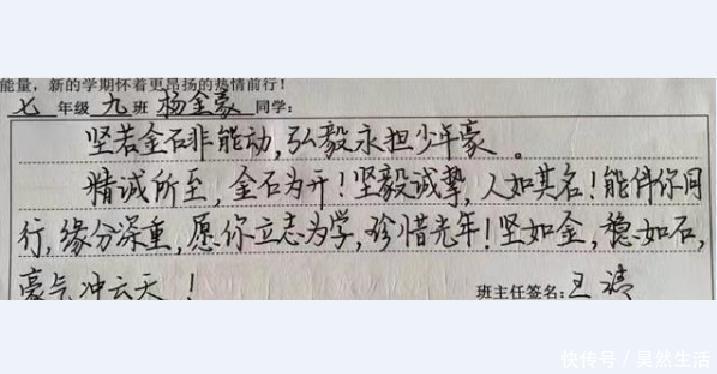 能量，新的学期怀着更昂扬的热情前行！
七 年级 九 班 杨金豪 同学：
坚若金石非能动，弘毅永担少年豪。
精诚所至，金石为开！坚毅诚挚，人如其名！能伴你同
行，缘分深重，愿你立志为学，珍惜光年！坚如金，稳如石，
豪气冲云天！
班主任签名：王
快传号／昊然生活